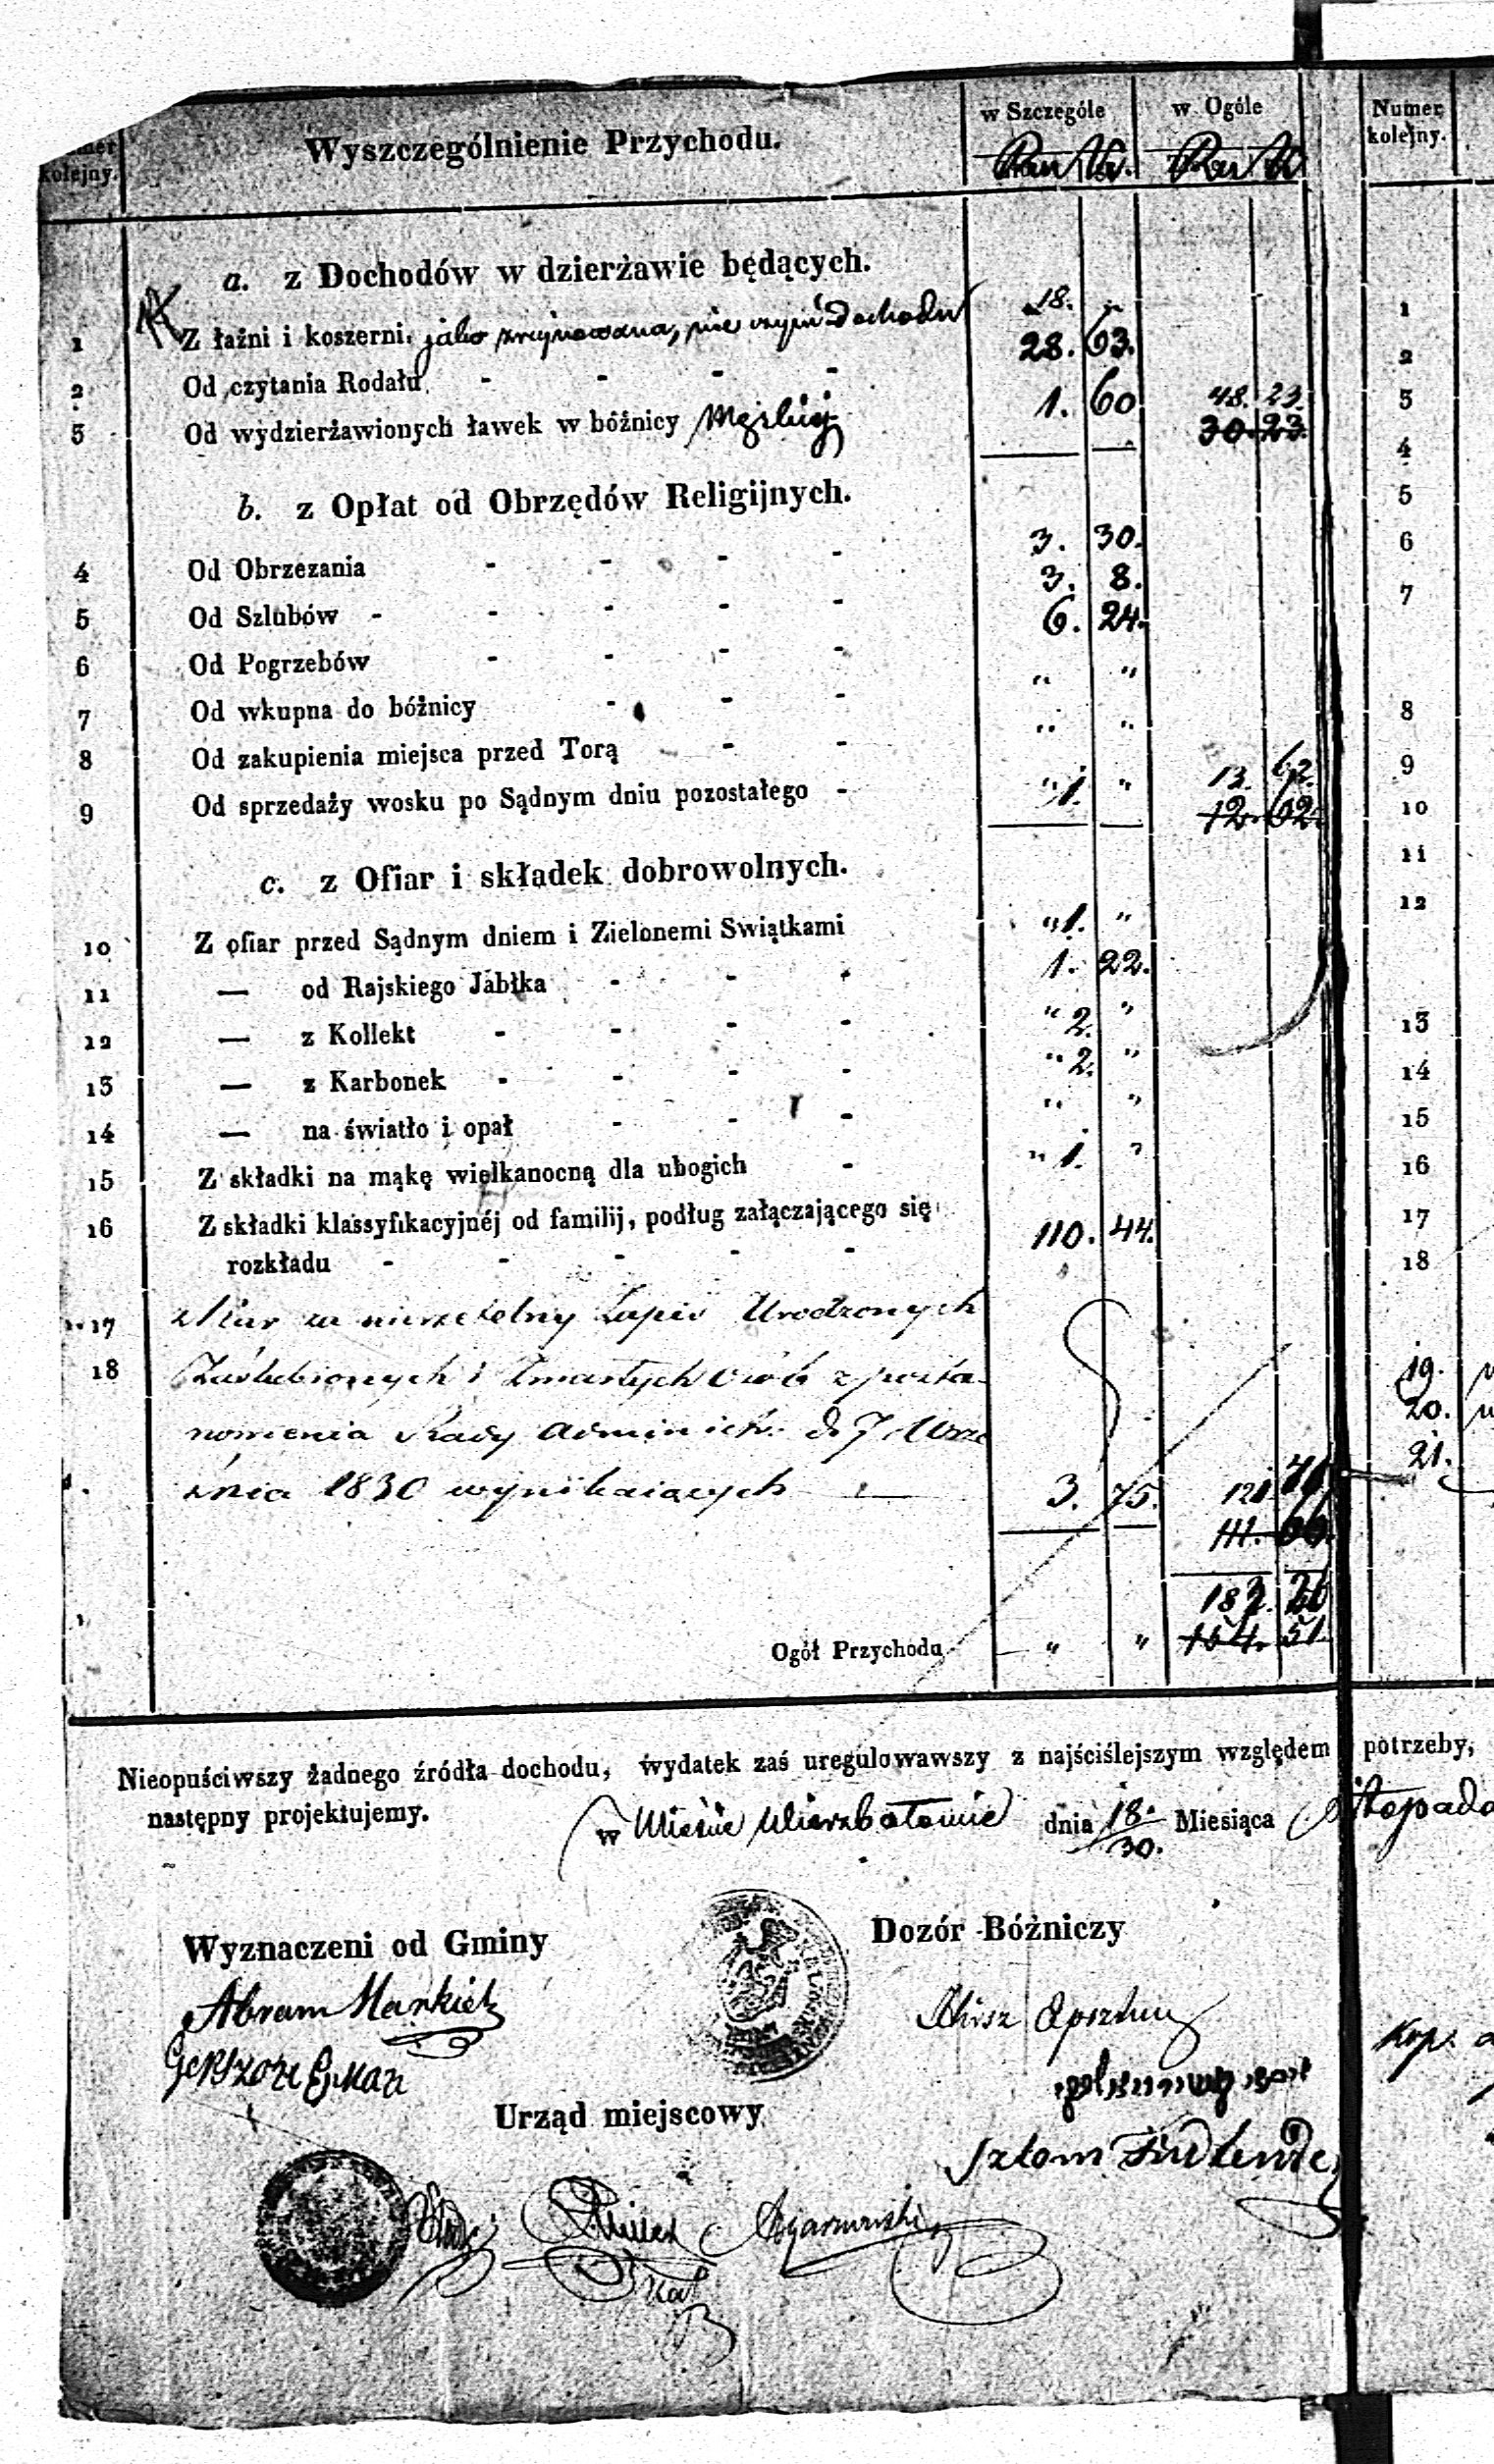 Numer kolejny.
Wyszczególnienie Przychodu.
w Szczególe
w Ogóle
Numer kolejny.
a. z Dochodów w dzierżawie będących.
1 Z łaźni i koszerni. jako zrujnowana, nie czyni dochodu 18. 1
2 Od czytania Rodału 28. 63. 2
3 Od wydzierżawionych ławek w bóżnicy Męzkiej 1. 60 48. 23. 3
30. 23. 4
b. z Opłat od Obrzędów Religijnych. 5
4 Od Obrzezania 3. 30. 6
5 Od Szlubów 3. 8. 7
6 Od Pogrzebów 6. 24.
7 Od wkupna do bóżnicy „ „ 8
8 Od zakupienia miejsca przed Torą „ „ 9
9 Od sprzedaży wosku po Sądnym dniu pozostałego „1. „ 13. 62. 10
12. 62. 11
c. z Ofiar i składek dobrowolnych. 12
10 Z ofiar przed Sądnym dniem i Zielonemi Swiątkami „1. „
11 — od Rajskiego Jabłka 1. 22.
12 — z Kollekt „2. „ 13
13 — z Karbonek „2. „ 14
14 — na światło i opał „ „ 15
15 Z składki na mąkę wielkanocną dla ubogich „1. „ 16
16 Z składki klassyfikacyjnéj od familij, podług załączającego się 17
rozkładu 110. 44. 18
17 z Kar za nierzetelny Zapis Urodzonych
18 Zaślubionych i Zmarłych Osób z posta- 19.
nowienia Rady Administr. d. 7 Wrze 20.
śnia 1830 wynikaiących 3. 75. 21.
111. 66.
182. 26
Ogół Przychodu „ „ 154. 51.
Nieopuściwszy żadnego źródła dochodu, wydatek zaś uregulowawszy z najściślejszym względem potrzeby,
następny projektujemy.
w Mieście Wierzbołowie dnia 18./30. Miesiąca Listopada
Wyznaczeni od Gminy
Dozór Bóżniczy
Abram Mankiel
Hirsz
Gerszon
Urząd miejscowy
Szlom
Kop.